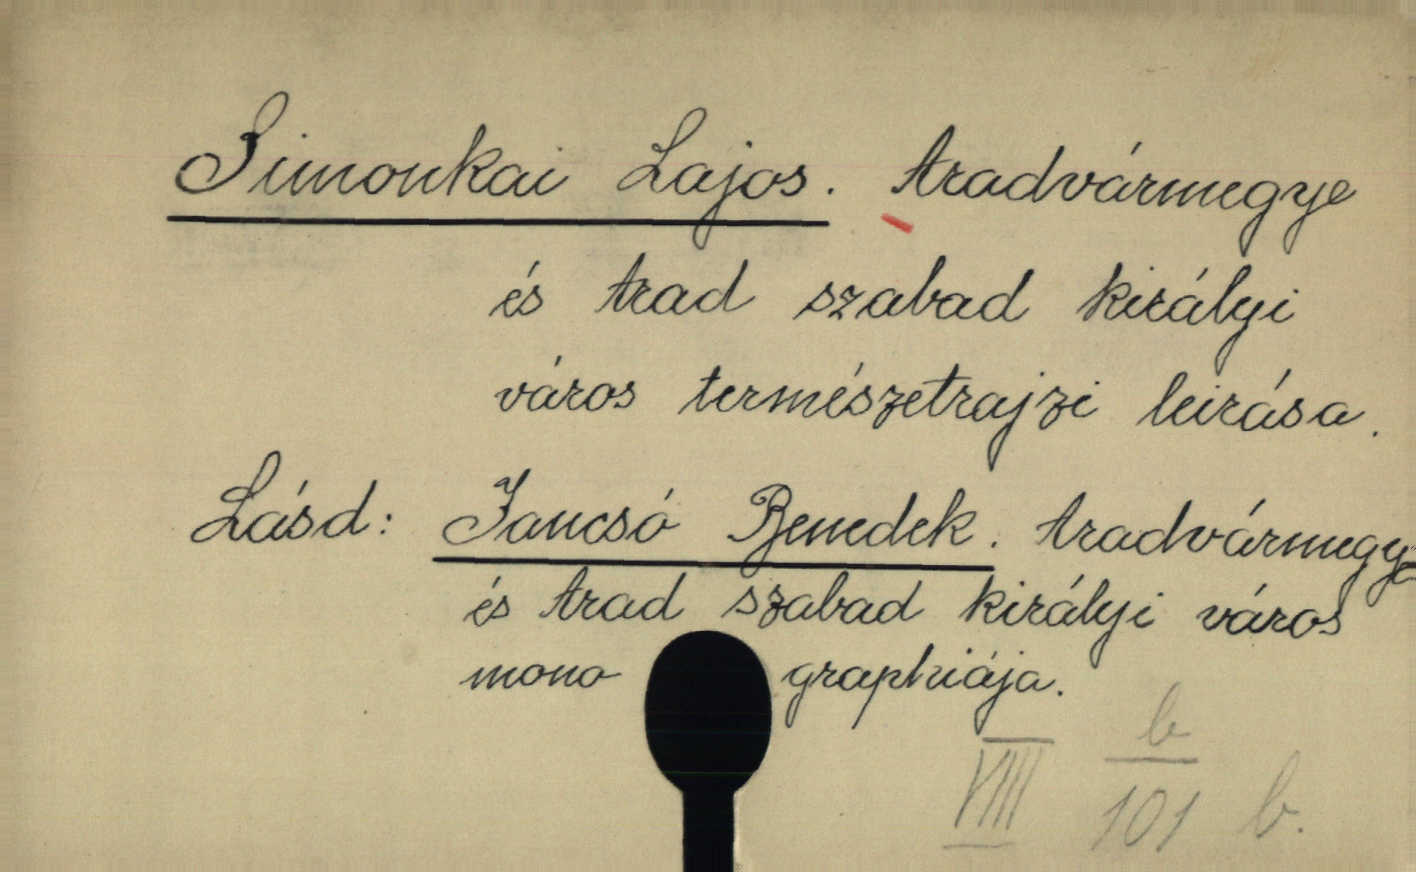 Simonkai Lajos. Aradvármegye
és Arad szabad királyi
város természetrajzi leirása.
Lásd: Jancsó Benedek. Aradvármegye
és Arad szabad királyi város
mono graphiája.
VIII b/101 b.